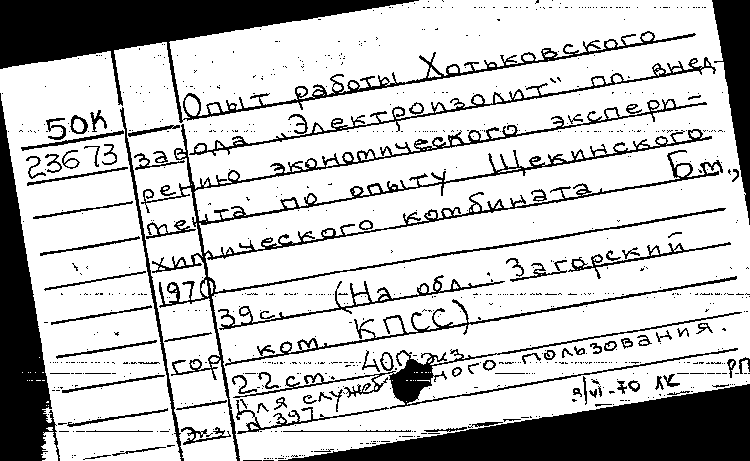 Опыт работы Хотьковского
50К
завода „Электроизолит" по внед-
23673
рению экономического экспери-
мента по опыту Щекинского
химического комбината. Б.м.,
1970.
39с. (На обл.: Загорский
гор. ком. КПСС).
22 см. 400 экз.
Для служебного пользования.
Экз. № 397.
9/VI-70 ЛК РП